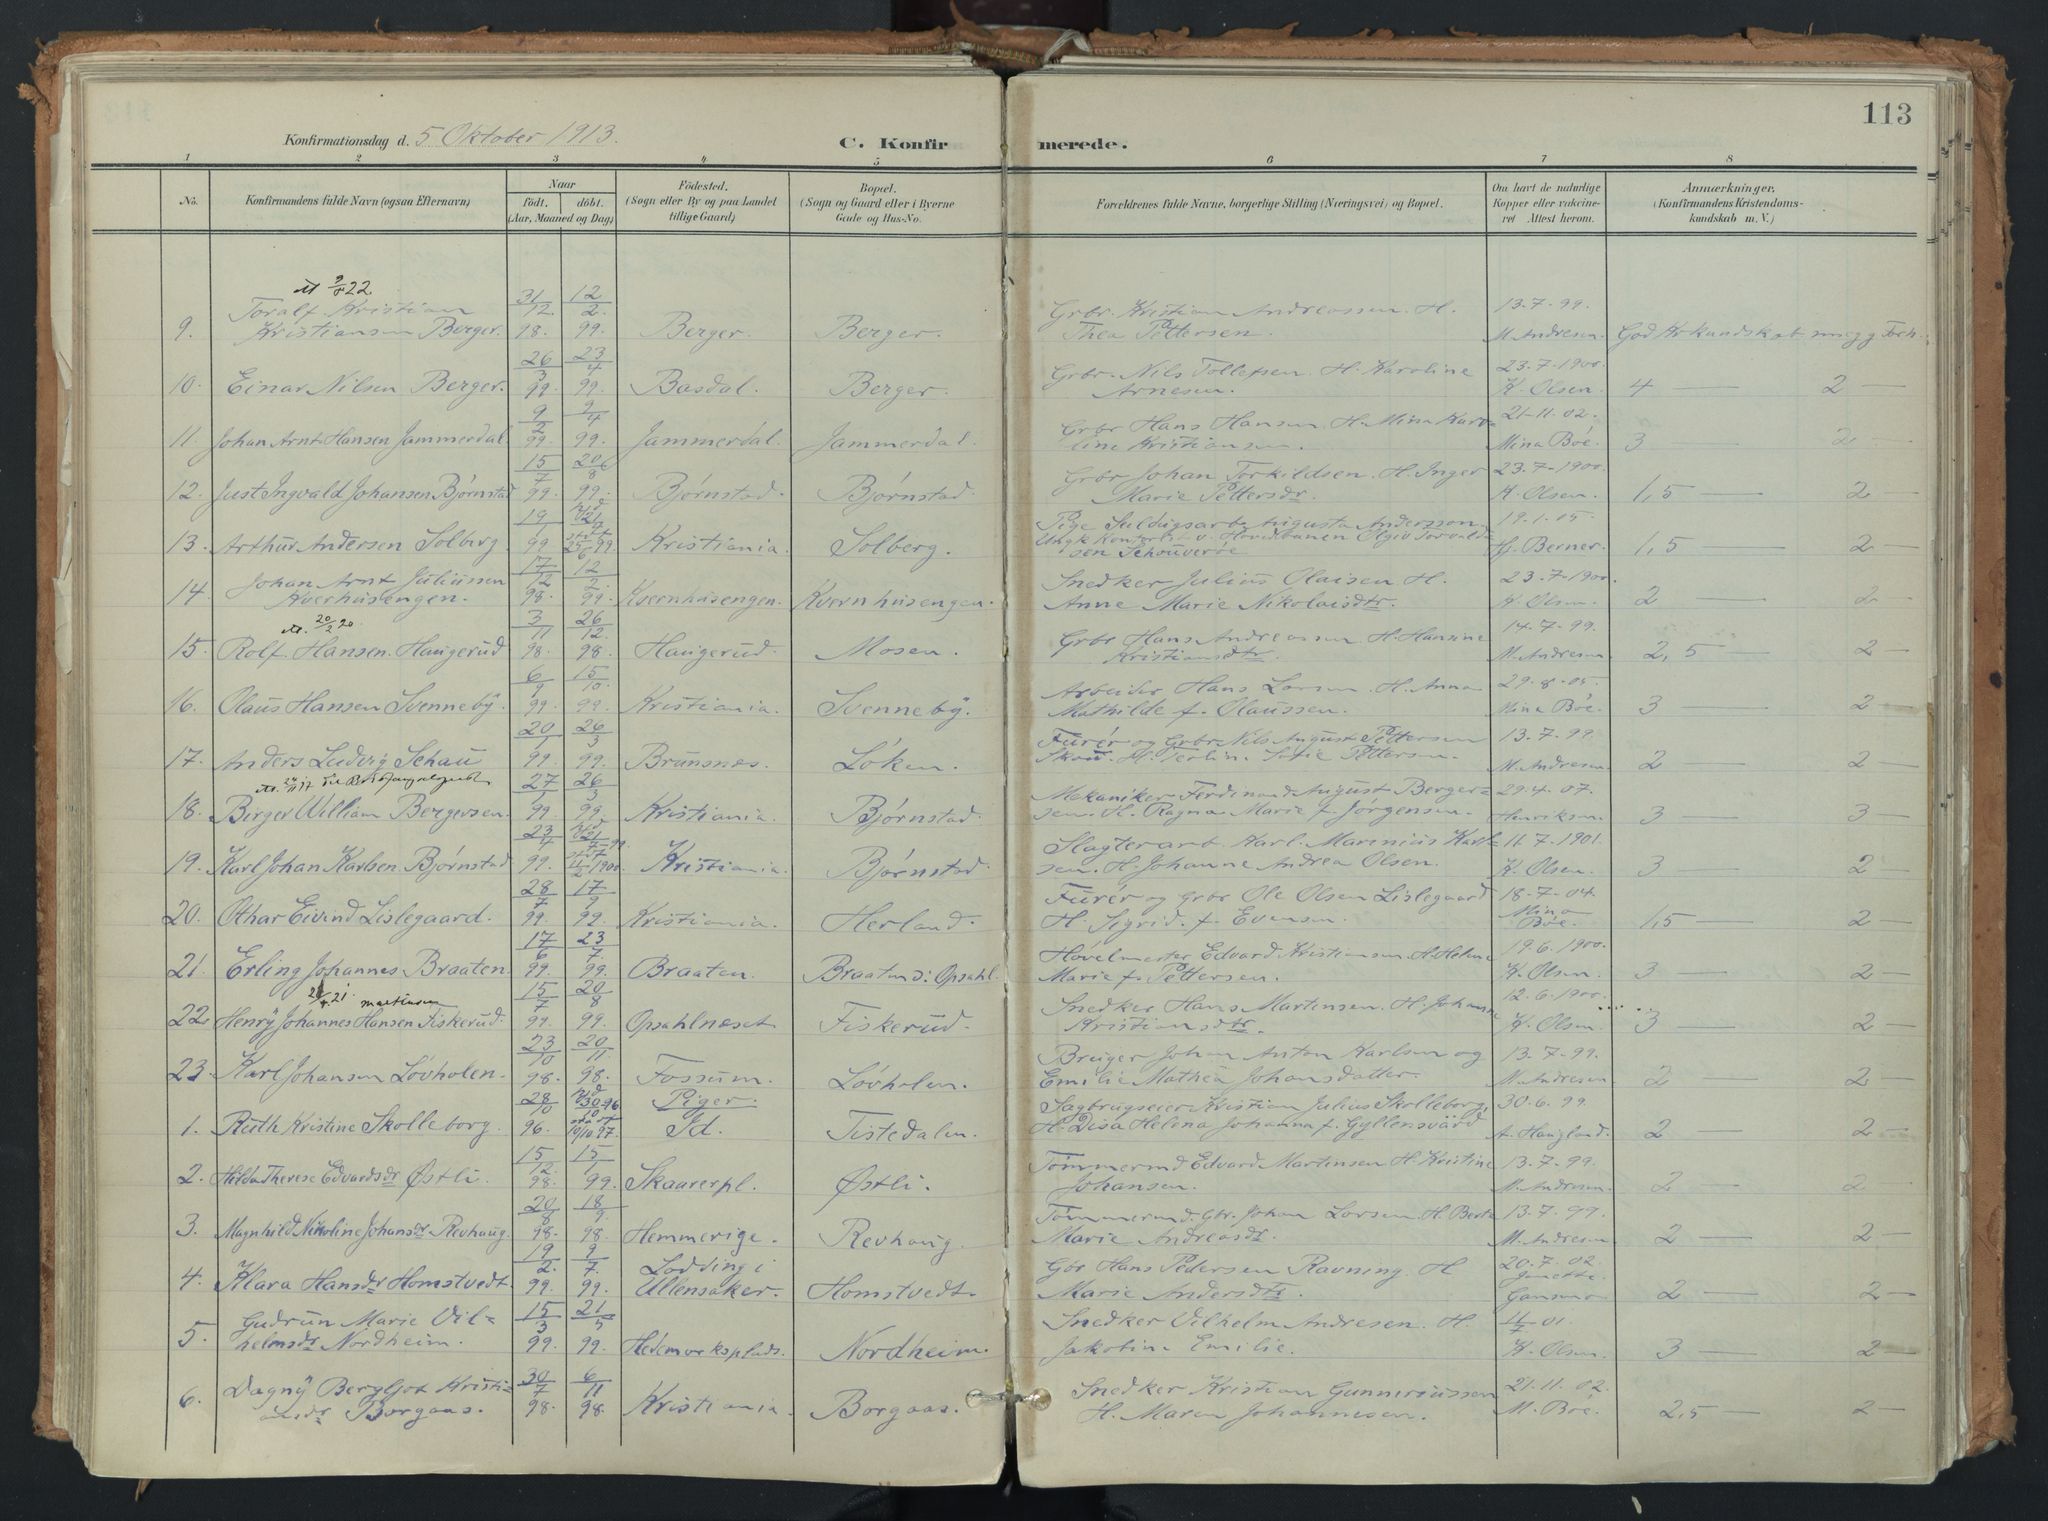 113
Konfirmationsdag d. 5 Oktober 1913.
C. Konfirmerede.
1 2 3 4 5 6 7 8
No.
Konfirmandens fulde Navn (ogsaa Efternavn)
Naar
födt. döbt.
(Aar, Maaned og Dag)
Födested.
(Sogn eller By og paa Landet
tillige Gaard)
Bopæl.
(Sogn og Gaard eller i Byerne
Gade og Hus-No.
Forældrenes fulde Navne, borgerlige Stilling (Næringsvei) og Bopæl.
Om havt de naturlige
Kopper eller vakcine-
ret Attest herom.
Anmærkninger.
(Konfirmandens Kristendoms-
kundskab m. V.)
Toralf Kristian 31/12 12/2 Grbr. Kristian Andreassen. H. 13-7-99.
9. Kristiansen Berger. 98. 99. Berger. Berger. Thea Pettersen. M. Andresen
26/3 23/4 Grbr. Nils Tollefsen. H. Karoline 23-7-1900.
10. Einar Nilsen Berger. 99. 99. Basdal. Berger. Arnesen. K. Olsen. 4 — 2 —
9/2 9/4 Grbr Hans Hansen. H. Mina Karo- 21-11-02.
11. Johan Arnt Hansen Jammerdal. 99. 99. Jammerdal. Jammerdal. line Kristiansen. Mina Böe. 3 — 2 —
15/7 20/8 Grbr Johan Torkildsen. H. Inger 23-7-1900.
12. Just Ingvald Johansen Björnstad 99. 99. Björnstad. Björnstad. Marie Pettersdr. K. Olsen. 1,5 — 2 —
19/1 Pige Augusta Andersson. 19-1-05.
13. Arthur Andersen Solberg 99 Kristiania. Solberg. H. Berner. 1,5 — 2 —
Johan Arnt Juliussen 17/12 12/2 Snedker Julius Olaisen H. 23-7-1900.
14. Kverhusengen. 98. 99. Kvernhusengen. Kvernhusengen. Anne Marie Nikolaisdtr. K. Olsen 2 — 2 —
20/2 20 3/11 26/12 Grbr Hans Andreassen H. Hansine 14-7-99.
15. Rolf Hansen Haugerud 98. 98. Haugerud. Mosen. Kristiansdtr. M. Andresen. 2,5 — 2 —
6/9 15/10 Arbeider Hans Larsen. H. Anna 29-8-05.
16. Olaus Hansen Svenneby. 99. 99. Kristiania. Svenneby. Mathilde f. Olaussen. Mina Böe. 3 — 2 —
20/1 26/3 Furér og Grbr. Nils August Pettersen 13-7-99.
17. Anders Ludvig Schau 99. 99. Brunsnes. Löken. M. Andresen. 2 — 2 —
27/1 26/3 Mekaniker Ferdinand August Berger- 29-4-07.
18. Birger William Bergersen. 99 99. Kristiania. Björnstad. sen. H. Ragna Marie f. Jörgensen. Henriksen. 3 — 3 —
23/4 Slagterarb. Karl Marinius Karl- 11-7-1901.
19. Karl Johan Karlsen Björnstad 99. Kristiania. Björnstad. sen. H. Johanne Andrea Olsen. K. Olsen. 3 — 2 —
28/7 17/9 Furér og Grbr Ole Olsen Lislegaard 18-7-04.
20. Othar Eivind Lislegaard. 99. 99. Kristiania. Herland. H. Sigrid f. Evensen. Mina Böe. 1,5 — 2 —
17/6 23/7 Hövelmester Edvard Kristiansen. H. Helene 19-6-1900.
21. Erling Johannes Braaten. 99. 99. Braaten. Braaten i Opsahl. Marie f. Pettersen. K. Olsen. 3 — 2 —
15/7 20/8 Snedker Hans Martinsen. H. Johanne 12-6-1900.
22. Henry Johannes Hansen Fiskerud. 99. 99. Opsahlneset. Fiskerud. Kristiansdtr. K. Olsen. 3 — 2 —
23/10 20/11 Bruger Johan Anton Karlsen og 13-7-99.
23. Karl Johansen Lövholen. 98. 98. Fossum. Lövholen. Emilie Mathea Johansdatter. M. Andresen. 2 — 2 —
Piger.
28/10 Sagbrugseier Kristian Julius Skolleborg, 30-6-99.
1. Ruth Kristine Skolleborg. 96. Id. Tistedalen. H. Disa Helena Johanna f. Gyllensvärd A. Haugland. 2 — 2 —
15/12 15/1 Tömmermd Edvard Martinsen H. Kristine 13-7-99.
2. Hilda Therese Edvardsdr Østli. 98. 99. Skaarerpl. Østli. Johansen. M. Andresen. 2 — 2
20/8 18/9 Tömmermd. Gbr. Johan Larsen. H. Berte 13-7-99.
3. Magnhild Nikoline Johansdr Revhaug. 98. 98. Hemmerige. Revhaug. Marie Andreasdr. M. Andresen 2 — 2 —
19/2 9/7 Lodding i Gbr Hans Pedersen Ravning. H. 20-7-02.
4. Klara Hansdr Homstvedt. 99. 99. Ullensaker. Homstvedt. Marie Andersdtr. 2 — 2 —
Gudrun Marie Vil- 15/3 21/5 Snedker Vilhelm Andresen. H. 11/7 01.
5. helmsdr Nordheim. 99. 99. Hedemarksplads. Nordheim. Jakobine Emilie. K. Olsen. 3 — 2 —
Dagny Bergljot Kristi- 30/7 6/11 Snedker Kristian Gunneriussen 21-11-02.
6. ansdr Borgaas. 98. 98. Kristiania. Borgaas. H. Maren Johannesen. M. Böe. 2,5 — 2 —